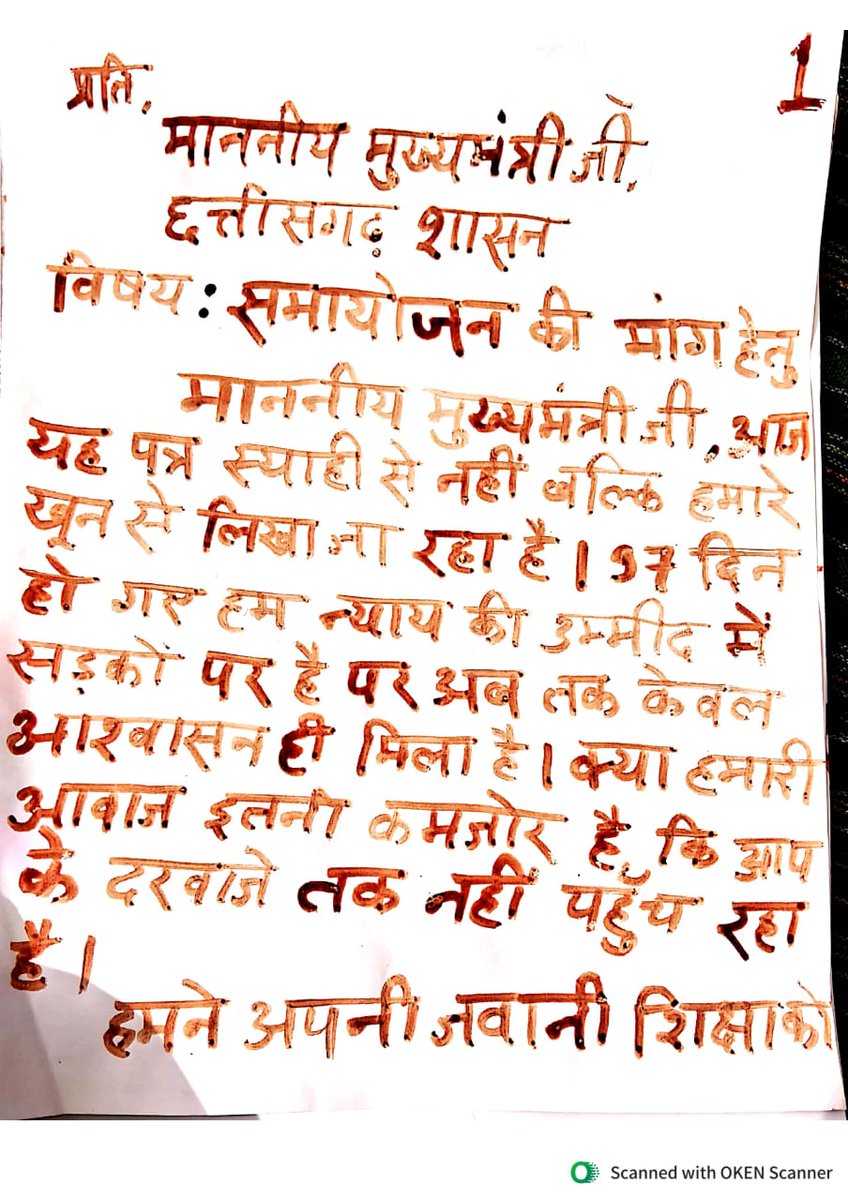 1
प्रति,
माननीय मुख्यमंत्री जी,
छत्तीसगढ़ शासन
विषय : समायोजन की मांग हेतु
माननीय मुख्यमंत्री जी, आज
यह पत्र स्याही से नहीं बल्कि हमारे
खून से लिखा जा रहा है। 37 दिन
हो गए हम न्याय की उम्मीद में
सड़कों पर है पर अब तक केवल
आश्वासन ही मिला है। क्या हमारी
आवाज इतनी कमजोर है, कि आप
के दरवाजे तक नहीं पहुँच रहा
है।
हमने अपनी जवानी शिक्षा को
Scanned with OKEN Scanner